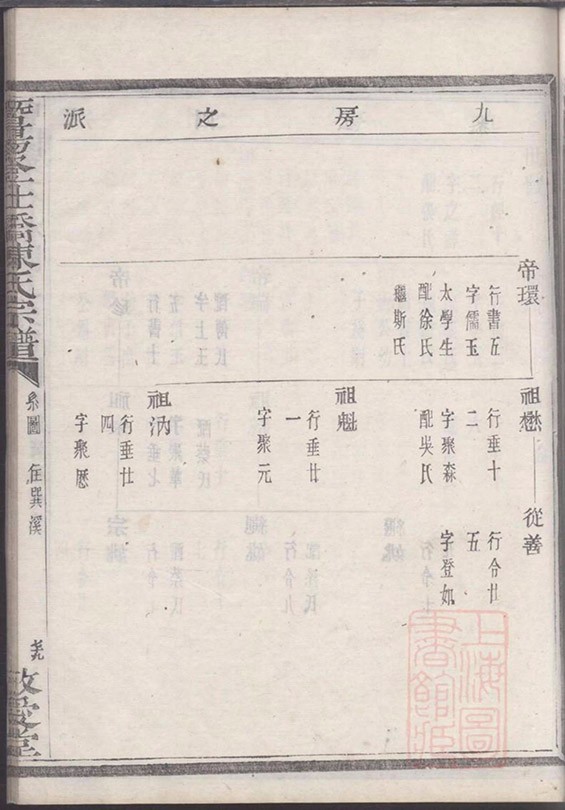 九房之派
帝環
行書五
字儒玉
太學生
配徐氏
繼斯氏
祖懋
行垂十
二
字聚森
配吳氏
從善
行分廿
五
字登如
祖魁
行垂廿
一
字聚元
祖汭
行垂廿
四
字聚恩
暨陽金士橋陳氏宗譜
系圖 住巽溪
敬愛堂
上海圖
書館藏